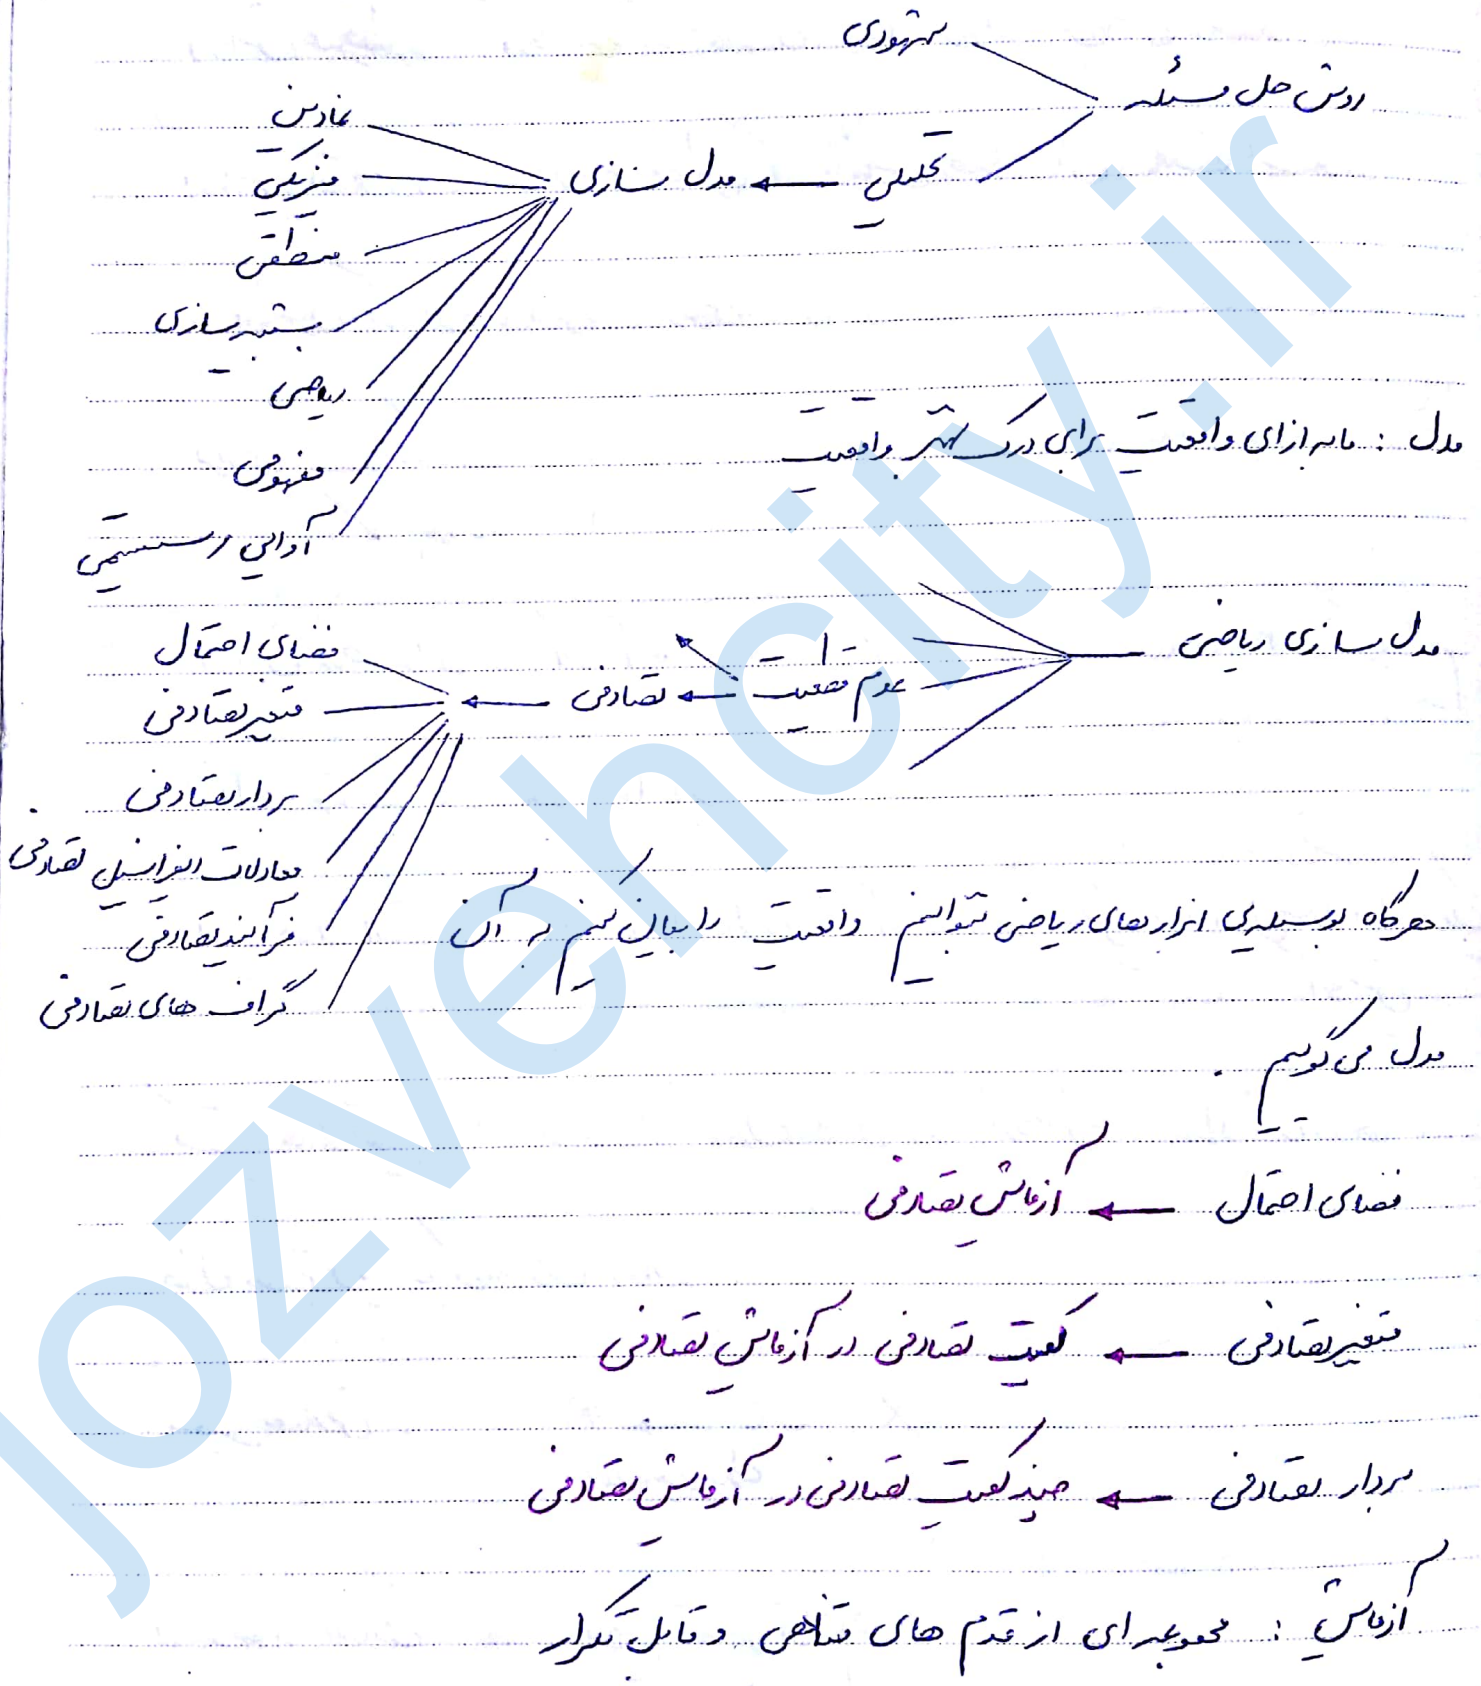 روش حل مسئله
شهودی
تحلیلی ← مدل سازی
نمادین
فیزیکی
منطقی
شبیه سازی
ریاضی
مفهومی
آوایی سیستمی
مدل : ما به ازای واقعیت برای درک بهتر واقعیت
مدل سازی ریاضی
عدم قطعیت ← تصادفی ←
فضای احتمال
متغیر تصادفی
بردار تصادفی
معادلات دیفرانسیل تصادفی
فرآیند تصادفی
گراف های تصادفی
هرگاه بوسیله‌ی ابزارهای ریاضی بتوانیم واقعیت را بیان کنیم به آن
مدل می گوییم .
فضای احتمال ← آزمایش تصادفی
متغیر تصادفی ← کمیت تصادفی در آزمایش تصادفی
بردار تصادفی ← چند کمیت تصادفی در آزمایش تصادفی
آزمایش : مجموعه ای از قدم های متناهی و قابل تکرار
jozvehcity.ir